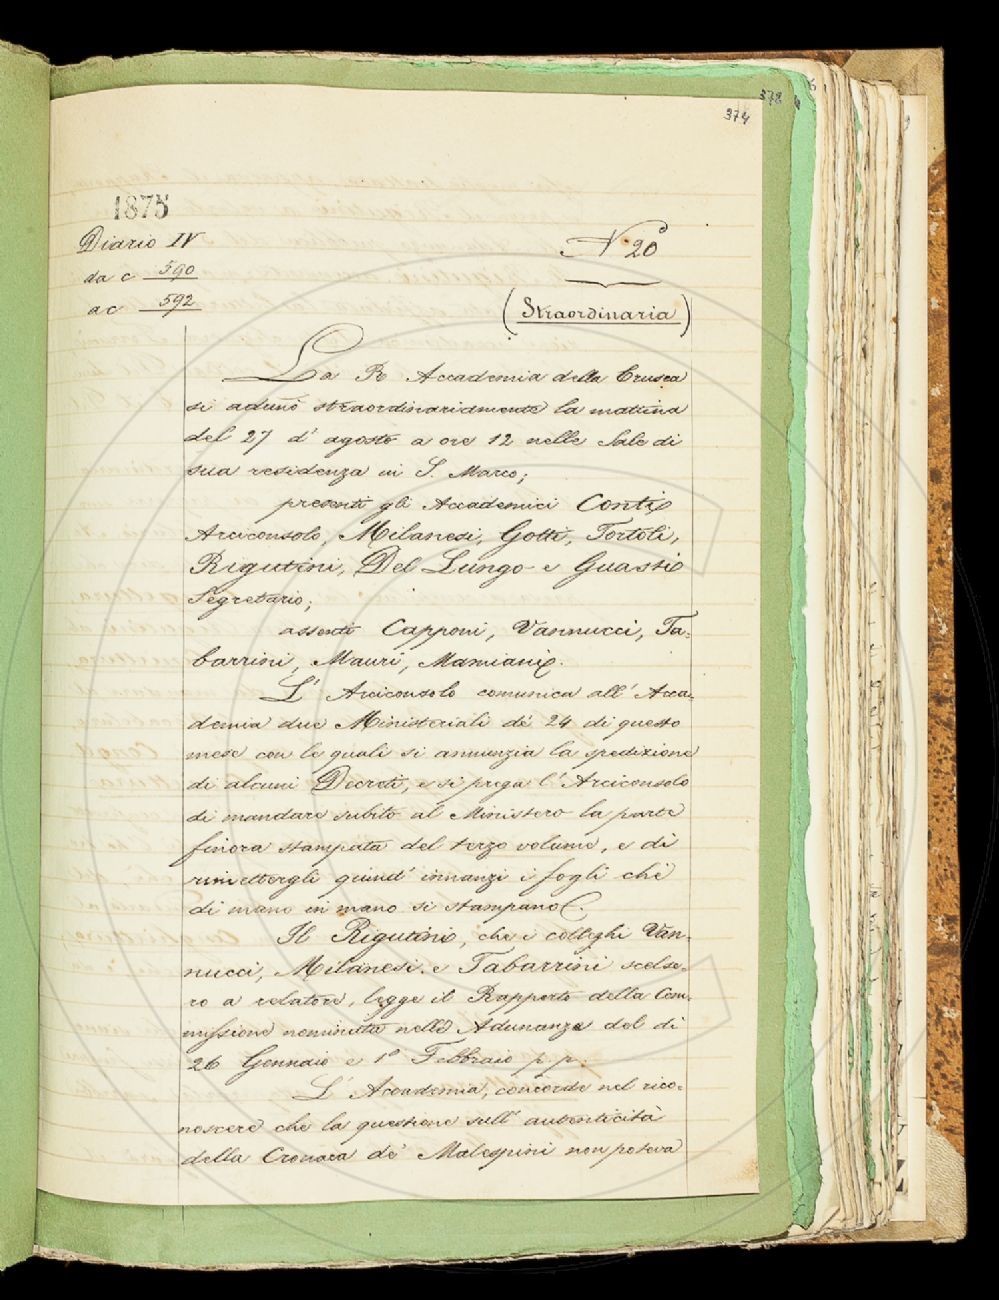 378
374
1875
Diario IV
da c 590
a c 592
N 20°
(Straordinaria)
La R Accademia della Crusca
si adunò straordinariamente la mattina
del 27 d' agosto a ore 12 nelle Sale di
sua residenza in S. Marco;
presenti gli Accademici Conti
Arciconsolo, Milanesi, Gotti, Tortoli,
Rigutini, Del Lungo e Guasti
Segretario;
assenti Capponi, Vannucci, Ta-
barrini, Mauri, Mamiani.
L' Arciconsolo comunica all' Acca-
demia due Ministeriali de' 24 di questo
mese con le quali si annunzia la spedizione
di alcuni Decreti, e si prega l' Arciconsolo
di mandare subito al Ministero la parte
finora stampata del terzo volume, e di
rimettergli quind' innanzi i fogli che
di mano in mano si stampano.
Il Rigutini, che i colleghi Van-
nucci, Milanesi e Tabarrini scelse-
ro a relatore, legge il Rapporto della Com-
missione nominata nelle Adunanze del dì
26 Gennaio e 1° Febbraio p. p.
L' Accademia, concorde nel rico-
noscere che la questione sull' autenticità
della Cronaca de' Malespini non poteva